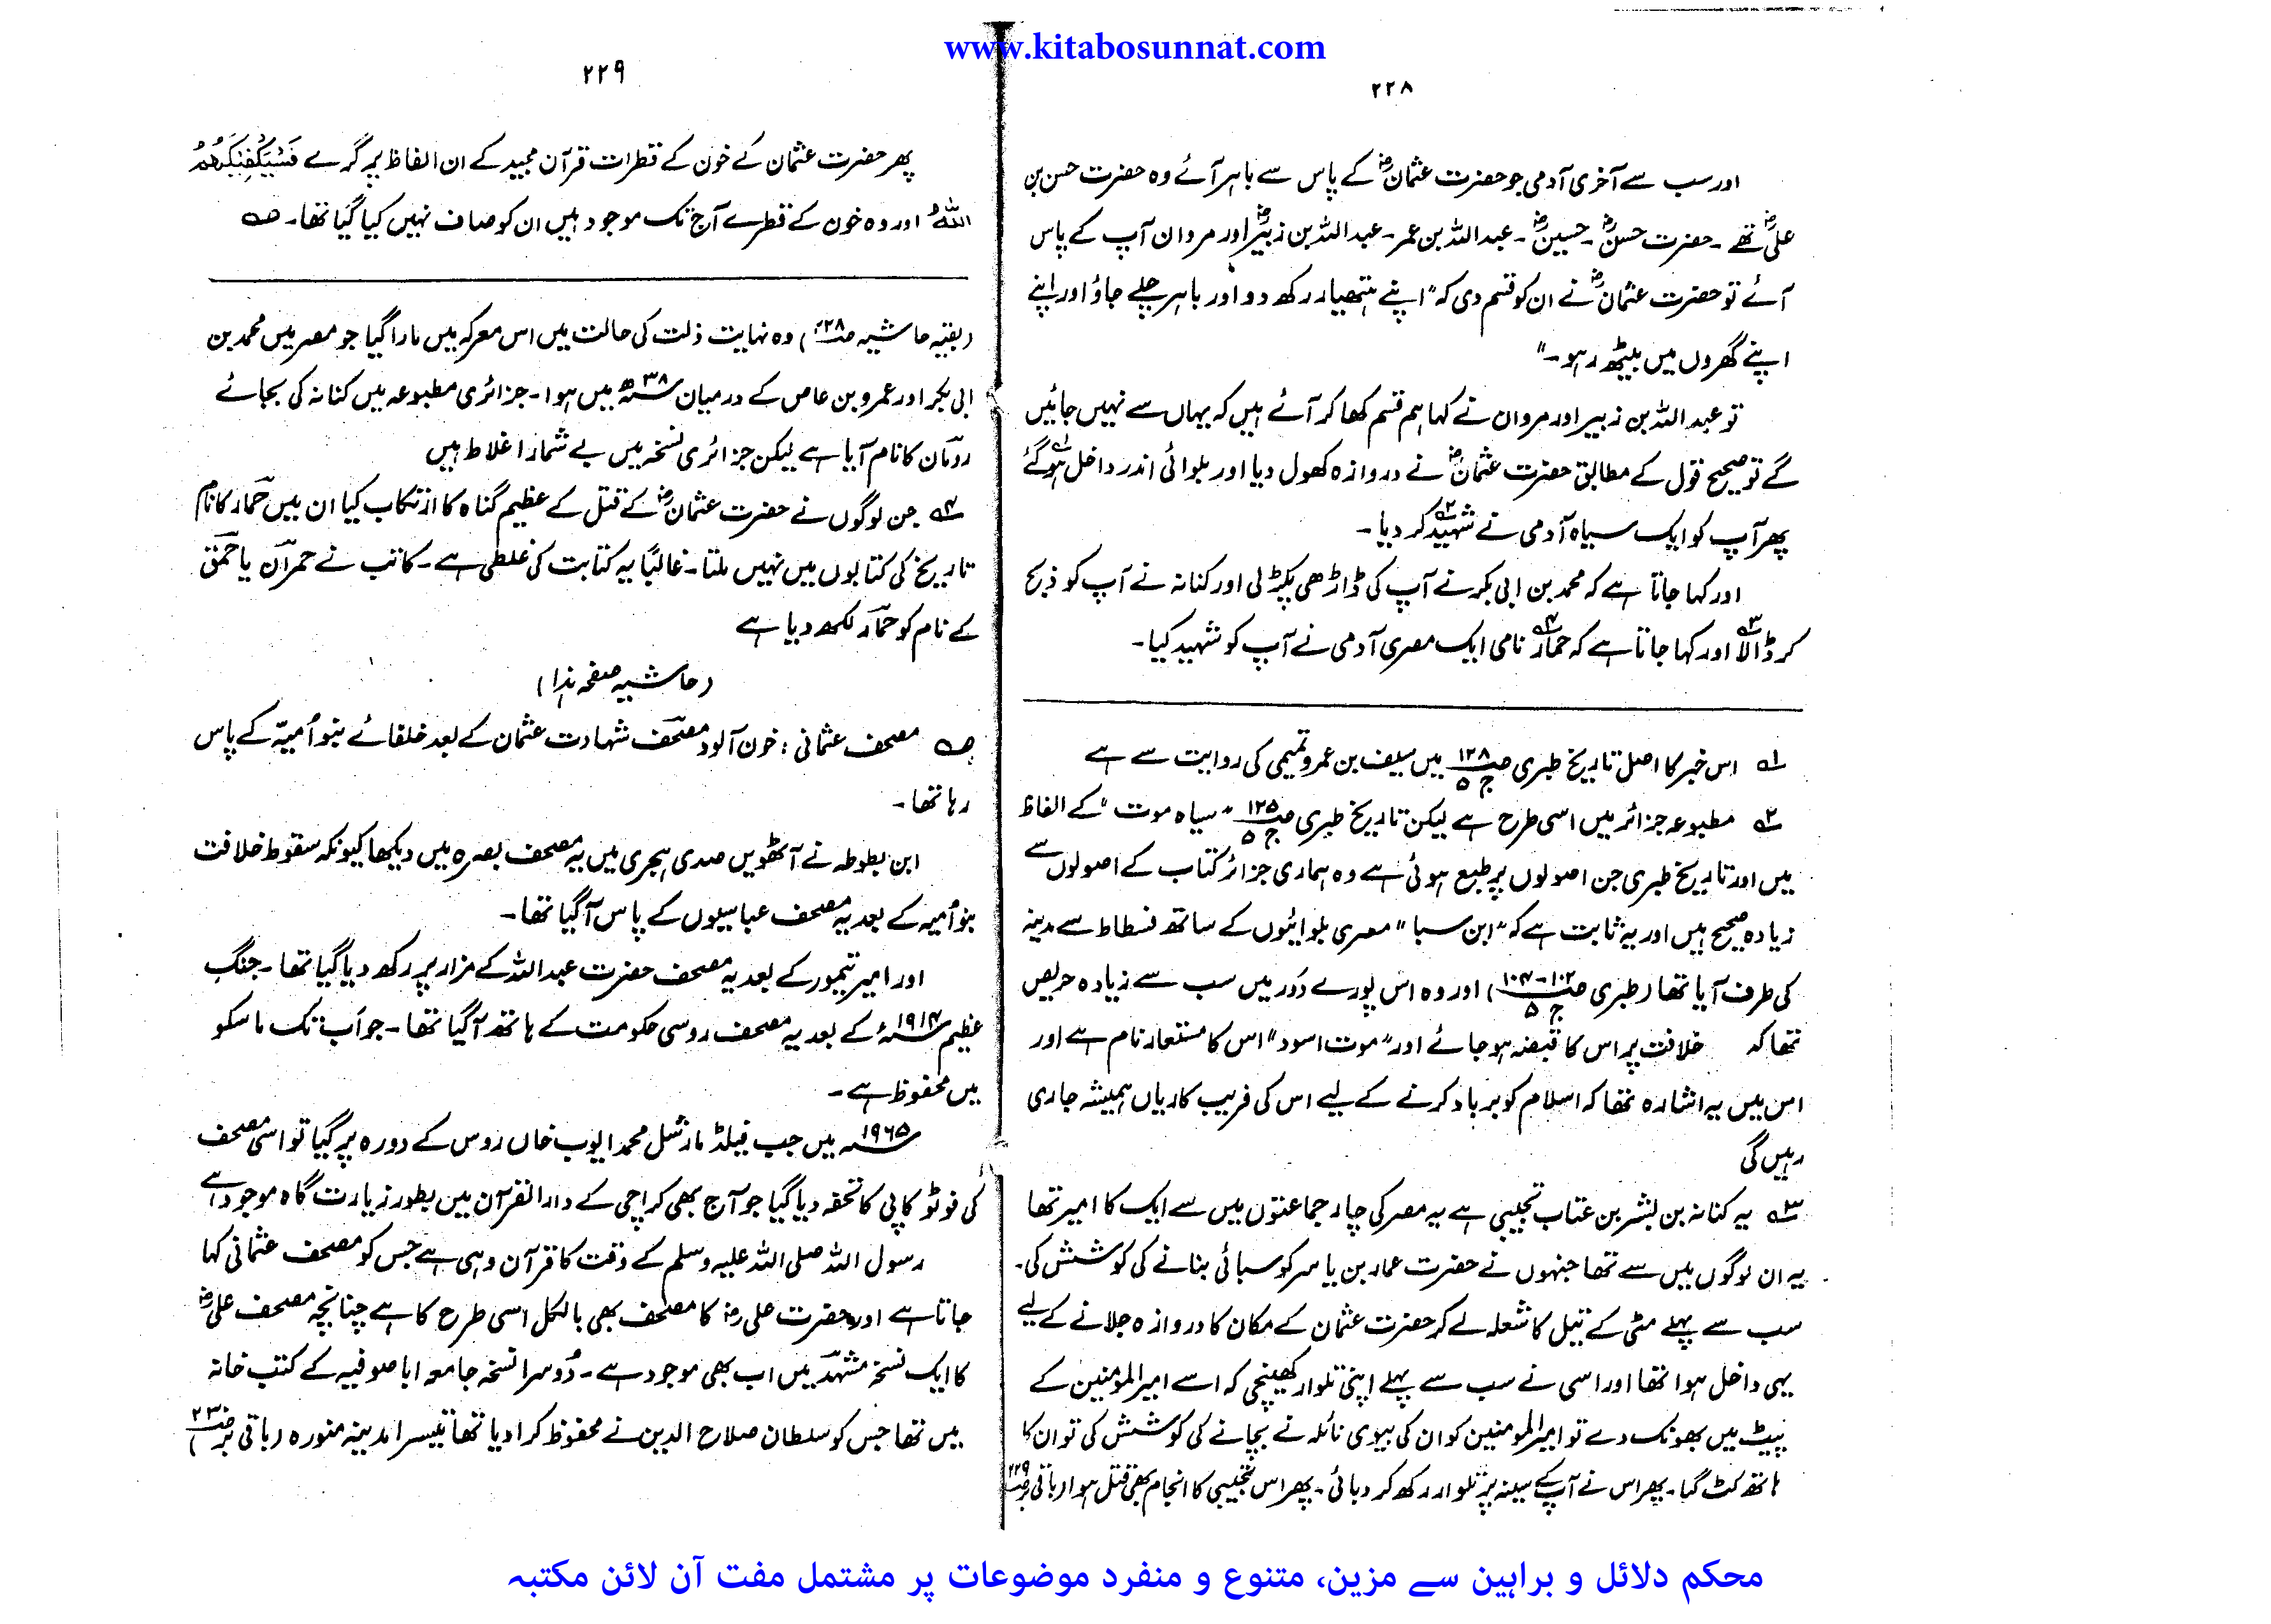 www.kitabosunnat.com
۲۲۸
اور سب سے آخری آدمی جو حضرت عثمانؓ کے پاس سے باہر آئے وہ حضرت حسن بن
علیؓ تھے ۔ حضرت حسنؓ ۔ حسینؓ ۔ عبداللہ بن عمر ۔ عبداللہ بن زبیرؓ اور مروان آپ کے پاس
آئے تو حضرت عثمانؓ نے ان کو قسم دی کہ "اپنے ہتھیار رکھ دو اور باہر چلے جاؤ اور اپنے
اپنے گھروں میں بیٹھ رہو ۔"
تو عبداللہ بن زبیر اور مروان نے کہا ہم قسم کھا کر آئے ہیں کہ یہاں سے نہیں جائیں
گے تو صحیح قول کے مطابق حضرت عثمانؓ نے دروازہ کھول دیا اور بلوائی اندر داخل ہو گئے ؎۱
پھر آپ کو ایک سیاہ آدمی نے شہید ؎۲ کر دیا ۔
اور کہا جاتا ہے کہ محمد بن ابی بکر نے آپ کی ڈاڑھی پکڑ لی اور کنانہ نے آپ کو ذبح
کر ڈالا ؎۳ اور کہا جاتا ہے کہ حمار ؎۴ نامی ایک مصری آدمی نے آپ کو شہید کیا ۔
؎۱ اس خبر کا اصل تاریخ طبری ص ۱۲۸ ج ۵ میں سیف بن عمرو تمیمی کی روایت سے ہے
؎۲ مطبوعہ جزائر میں اسی طرح ہے لیکن تاریخ طبری ص ۱۲۵ ج ۵ "سیاہ موت" کے الفاظ
ہیں اور تاریخ طبری جن اصولوں پر طبع ہوئی ہے وہ ہماری جزائر کتاب کے اصولوں سے
زیادہ صحیح ہیں اور یہ ثابت ہے کہ "ابن سبا" مصری بلوائیوں کے ساتھ فسطاط سے مدینہ
کی طرف آیا تھا (طبری ص ۱۰۲-۱۰۴ ج ۵) اور وہ اس پورے دَور میں سب سے زیادہ حریص
تھا کہ خلافت پر اس کا قبضہ ہو جائے اور "موت اسود" اس کا مستعار نام ہے اور
اس میں یہ اشارہ تھا کہ اسلام کو برباد کرنے کے لیے اس کی فریب کاریاں ہمیشہ جاری
رہیں گی
؎۳ یہ کنانہ بن بشر بن عتاب تجیبی ہے یہ مصر کی چار جماعتوں میں سے ایک کا امیر تھا
یہ ان لوگوں میں سے تھا جنہوں نے حضرت عمار بن یاسر کو سبائی بنانے کی کوشش کی ۔
سب سے پہلے مٹی کے تیل کا شعلہ لے کر حضرت عثمان کے مکان کا دروازہ جلانے کے لیے
یہی داخل ہوا تھا اور اسی نے سب سے پہلے اپنی تلوار کھینچی کہ اسے امیر المومنین کے
پیٹ میں بھونک دے تو امیر المومنین کو ان کی بیوی نائلہ نے بچانے کی کوشش کی تو ان کا
ہاتھ کٹ گیا ۔ پھر اس نے آپ کے سینہ پر تلوار رکھ کر دبائی ۔ پھر اس تجیبی کا انجام بھی قتل ہوا (باقی بر ص ۲۲۹
۲۲۹
پھر حضرت عثمان کے خون کے قطرات قرآن مجید کے ان الفاظ پر گرے فَسَيَكْفِيكَهُمُ
اللهُ اور وہ خون کے قطرے آج تک موجود ہیں ان کو صاف نہیں کیا گیا تھا ۔ ؎۵
(بقیہ حاشیہ ص ۲۲۸) وہ نہایت ذلت کی حالت میں اس معرکہ میں مارا گیا جو مصر میں محمد بن
ابی بکر اور عمرو بن عاص کے درمیان ۳۸ھ میں ہوا ۔ جزائری مطبوعہ میں کنانہ کی بجائے
رومان کا نام آیا ہے لیکن جزائری نسخہ میں بے شمار اغلاط ہیں
؎۴ جن لوگوں نے حضرت عثمانؓ کے قتل کے عظیم گناہ کا ارتکاب کیا ان میں حمار کا نام
تاریخ کی کتابوں میں نہیں ملتا ۔ غالبًا یہ کتابت کی غلطی ہے ۔ کاتب نے حمران یا حمق
کے نام کو حمار لکھ دیا ہے
(حاشیہ صفحہ ہذا)
؎۵ مصحف عثمانی : خون آلود مصحف شہادت عثمان کے بعد خلفائے بنو اُمیّہ کے پاس
رہا تھا ۔
ابن بطوطہ نے آٹھویں صدی ہجری میں یہ مصحف بصرہ میں دیکھا کیونکہ سقوط خلافت
بنو اُمیہ کے بعد یہ مصحف عباسیوں کے پاس آ گیا تھا ۔
اور امیر تیمور کے بعد یہ مصحف حضرت عبداللہ کے مزار پر رکھ دیا گیا تھا ۔ جنگِ
عظیم ۱۹۱۴ء کے بعد یہ مصحف روسی حکومت کے ہاتھ آ گیا تھا ۔ جو اَب تک ماسکو
میں محفوظ ہے ۔
۱۹۶۵ میں جب فیلڈ مارشل محمد ایوب خاں روس کے دورہ پر گیا تو اسی مصحف
کی فوٹو کاپی کا تحفہ دیا گیا جو آج بھی کراچی کے دارالقرآن میں بطور زیارت گاہ موجود ہے
رسول اللہ صلی اللہ علیہ وسلم کے وقت کا قرآن وہی ہے جس کو مصحف عثمانی کہا
جاتا ہے اور حضرت علیؓ کا مصحف بھی بالکل اسی طرح کا ہے چنانچہ مصحف علیؓ
کا ایک نسخہ مشہد میں اب بھی موجود ہے ۔ دُوسرا نسخہ جامعہ ایا صوفیہ کے کتب خانہ
میں تھا جس کو سلطان صلاح الدین نے محفوظ کرا دیا تھا تیسرا مدینہ منورہ (باقی بر ص ۲۳۰)
محکم دلائل و براہین سے مزین، متنوع و منفرد موضوعات پر مشتمل مفت آن لائن مکتبہ